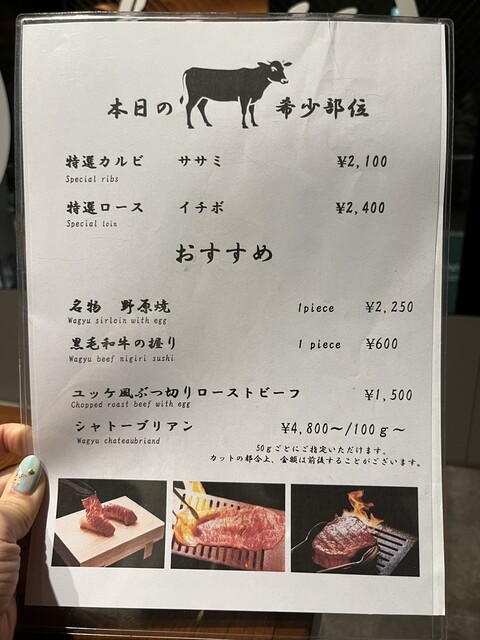 本日の 希少部位
特選カルビ ササミ ¥2,100
Special ribs
特選ロース イチボ ¥2,400
Special loin
おすすめ
名物 野原焼 1piece ¥2,250
Wagyu sirloin with egg
黒毛和牛の握り 1 piece ¥600
Wagyu beef nigiri sushi
ユッケ風ぶつ切りローストビーフ ¥1,500
Chopped roast beef with egg
シャトーブリアン ¥4,800～/100g～
Wagyu chateaubriand
50gごとにご指定いただけます。
カットの都合上、金額は前後することがございます。